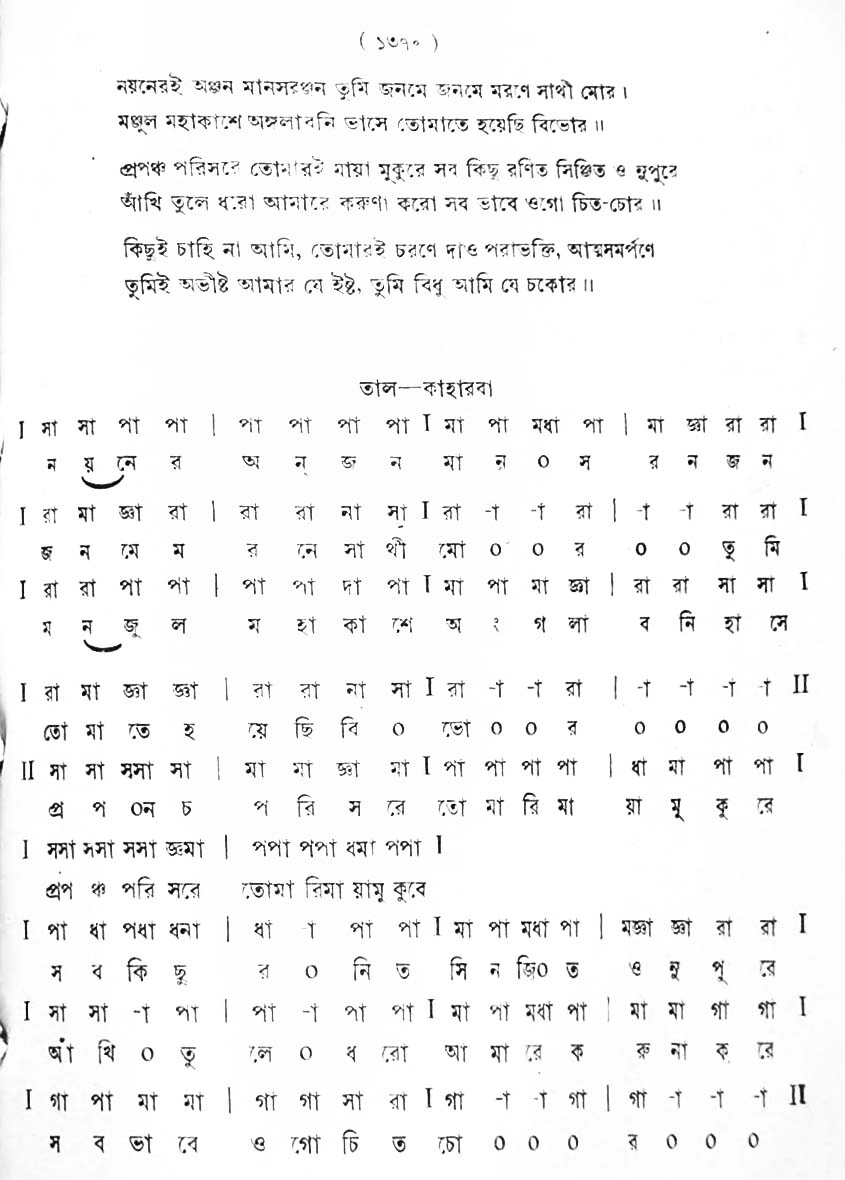 ( ১৩৭০ )
নয়নেরই অঞ্জন মানসরঞ্জন তুমি জনমে জনমে মরণে সাথী মোর।
মঞ্জুল মহাকাশে অঙ্গলাবনি ভাসে তোমাতে হয়েছি বিভোর॥
প্রপঞ্চ পরিসরে তোমারই মায়া মুকুরে সব কিছু রণিত সিঞ্জিত ও নুপুরে
আঁখি তুলে ধরো আমারে করুণা করো সব ভাবে ওগো চিত-চোর॥
কিছুই চাহি না আমি, তোমারই চরণে দাও পরাভক্তি, আত্মসমর্পণে
তুমিই অভীষ্ট আমার যে ইষ্ট, তুমি বিধু আমি যে চকোর॥
তাল—কাহারবা
I সা সা পা পা | পা পা পা পা I মা পা মধা পা | মা জ্ঞা রা রা I
ন য় নে র অ ন্ জ ন মা ন্ ০ স র ন জ ন
I রা মা জ্ঞা রা | রা রা না সা I রা -া -া রা | -া -া রা রা I
জ ন মে ম র নে সা থী মো ০ ০ র ০ ০ তু মি
I রা রা পা পা | পা পা দা পা I মা পা মা জ্ঞা | রা রা সা সা I
ম ন জু ল ম হা কা শে অ ং গ লা ব নি হা সে
I রা মা জ্ঞা জ্ঞা | রা রা না সা I রা -া -া রা | -া -া -া -া II
তো মা তে হ য়ে ছি বি ০ ভো ০ ০ র ০ ০ ০ ০
II সা সা সসা সা | মা মা জ্ঞা মা I পা পা পা পা | ধা মা পা পা I
প্র প ০ন চ প রি স রে তো মা রি মা য়া মু কু রে
I সসা সসা সসা জ্ঞমা | পপা পপা ধমা পপা I
প্রপ ঞ্চ পরি সরে তোমা রিমা য়ামু কুবে
I পা ধা পধা ধনা | ধা -া পা পা I মা পা মধা পা | মজ্ঞা জ্ঞা রা রা I
স ব কি ছু র ০ নি ত সি ন জি০ ত ও নু পূ রে
I সা সা -া পা | পা -া পা পা I মা পা মধা পা | মা মা গা গা I
আঁ খি ০ তু লে ০ ধ রো আ মা রে ক রু না ক রে
I গা পা মা মা | গা গা সা রা I গা -া -া গা | গা -া -া -া II
স ব ভা বে ও গো চি ত চো ০ ০ ০ র ০ ০ ০